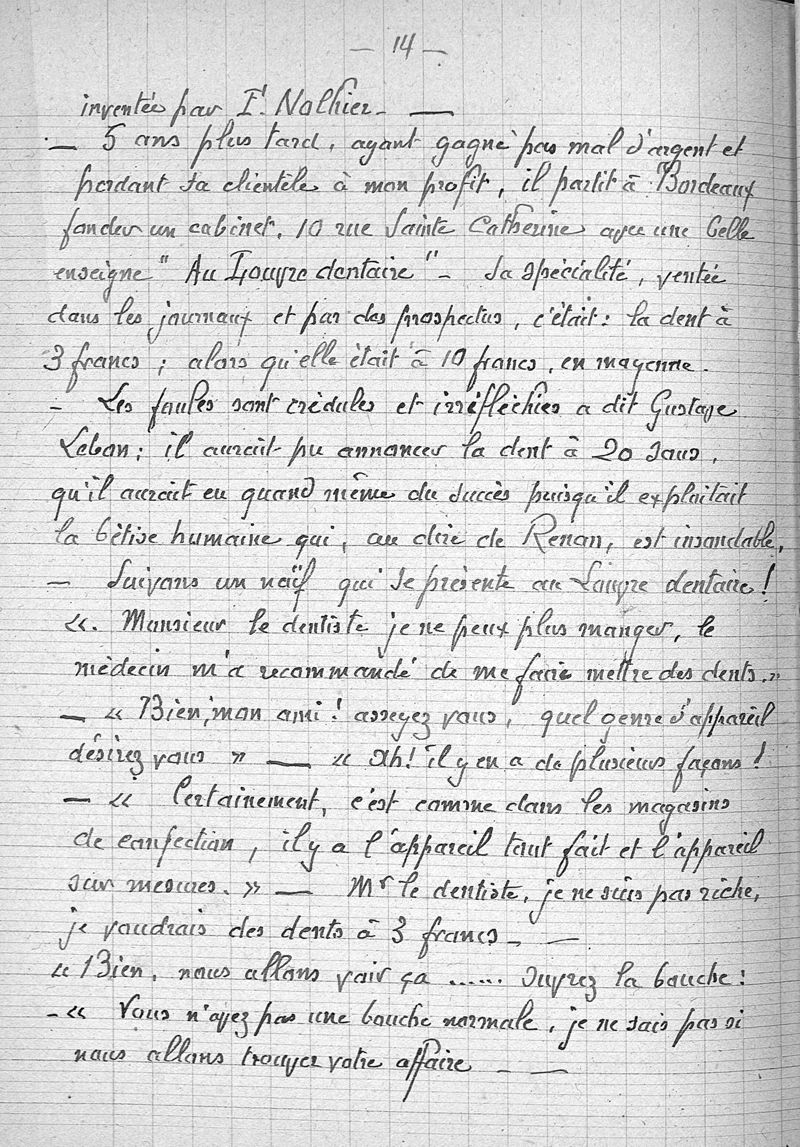 — 14 —
inventée par Ft Nolhier — —
— 5 ans plus tard, ayant gagné pas mal d'argent et
perdant sa clientèle à mon profit, il partit à Bordeaux
fonder un cabinet, 10 rue Sainte Catherine avec une belle
enseigne " Au Louvre dentaire " — Sa spécialité, ventée
dans les journaux et par des prospectus, c'était : la dent à
3 francs ; alors qu'elle était à 10 francs, en moyenne.
— Les foules sont crédules et irréfléchies a dit Gustave
Lebon ; il aurait pu annoncer la dent à 20 sous,
qu'il aurait eu quand même du succès puisqu'il exploitait
la bêtise humaine qui, au dire de Renan, est insondable.
— Suivons un naïf qui se présente au Louvre dentaire !
«. Monsieur le dentiste je ne peux plus manger, le
médecin m'a recommandé de me faire mettre des dents. »
— « Bien, mon ami ! asseyez vous, quel genre d'appareil
désirez vous » — « Ah ! il y en a de plusieurs façons !
— « Certainement, c'est comme dans les magasins
de confection, il y a l'appareil tout fait et l'appareil
sur mesures. » — Mr le dentiste, je ne suis pas riche,
je voudrais des dents à 3 francs — —
« Bien, nous allons voir ça ...... ouvrez la bouche !
— « Vous n'avez pas une bouche normale, je ne sais pas si
nous allons trouver votre affaire — —